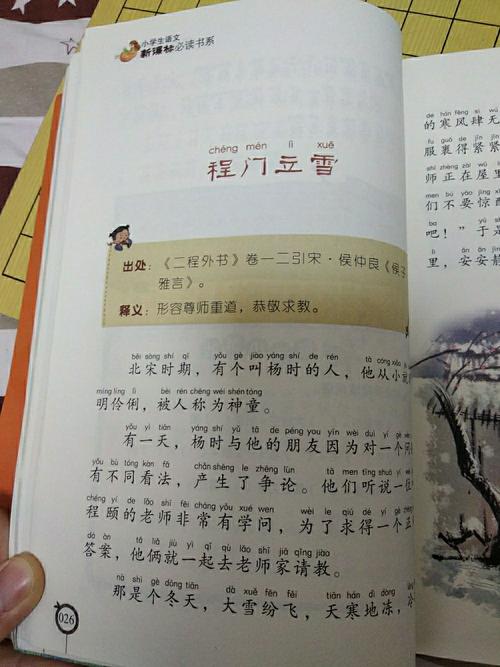 小学生语文
新课标必读书系
chéng mén lì xuě
程门立雪
出处：《二程外书》卷一二引宋·侯仲良《侯子
雅言》。
释义：形容尊师重道，恭敬求教。
běi sòng shí qī yǒu gè jiào yáng shí de rén tā cóng xiǎo
北宋时期，有个叫杨时的人，他从小就
míng líng lì bèi rén chēng wéi shén tóng
明伶俐，被人称为神童。
yǒu yì tiān yáng shí yǔ tā de péng you yīn wèi duì yí gè
有一天，杨时与他的朋友因为对一个问
yǒu bù tóng kàn fǎ chǎn shēng le zhēng lùn tā men tīng shuō yí
有不同看法，产生了争论。他们听说一位
chéng yí de lǎo shī fēi cháng yǒu xué wen wèi le qiú dé yí gè
程颐的老师非常有学问，为了求得一个正
dá àn tā liǎ jiù yì qǐ qù lǎo shī jiā qǐng jiào
答案，他俩就一起去老师家请教。
nà shì gè dōng tiān dà xuě fēn fēi tiān hán dì dòng
那是个冬天，大雪纷飞，天寒地冻，冷
026
de hán fēng sì wú
的寒风肆无
fú guǒ de jǐn jǐn
服裹得紧紧
shī zhèng zài wū
师正在屋里
men bú yào jīng
们不要惊
ba yú
吧！”于是
lǐ ān ān jìng
里，安安静